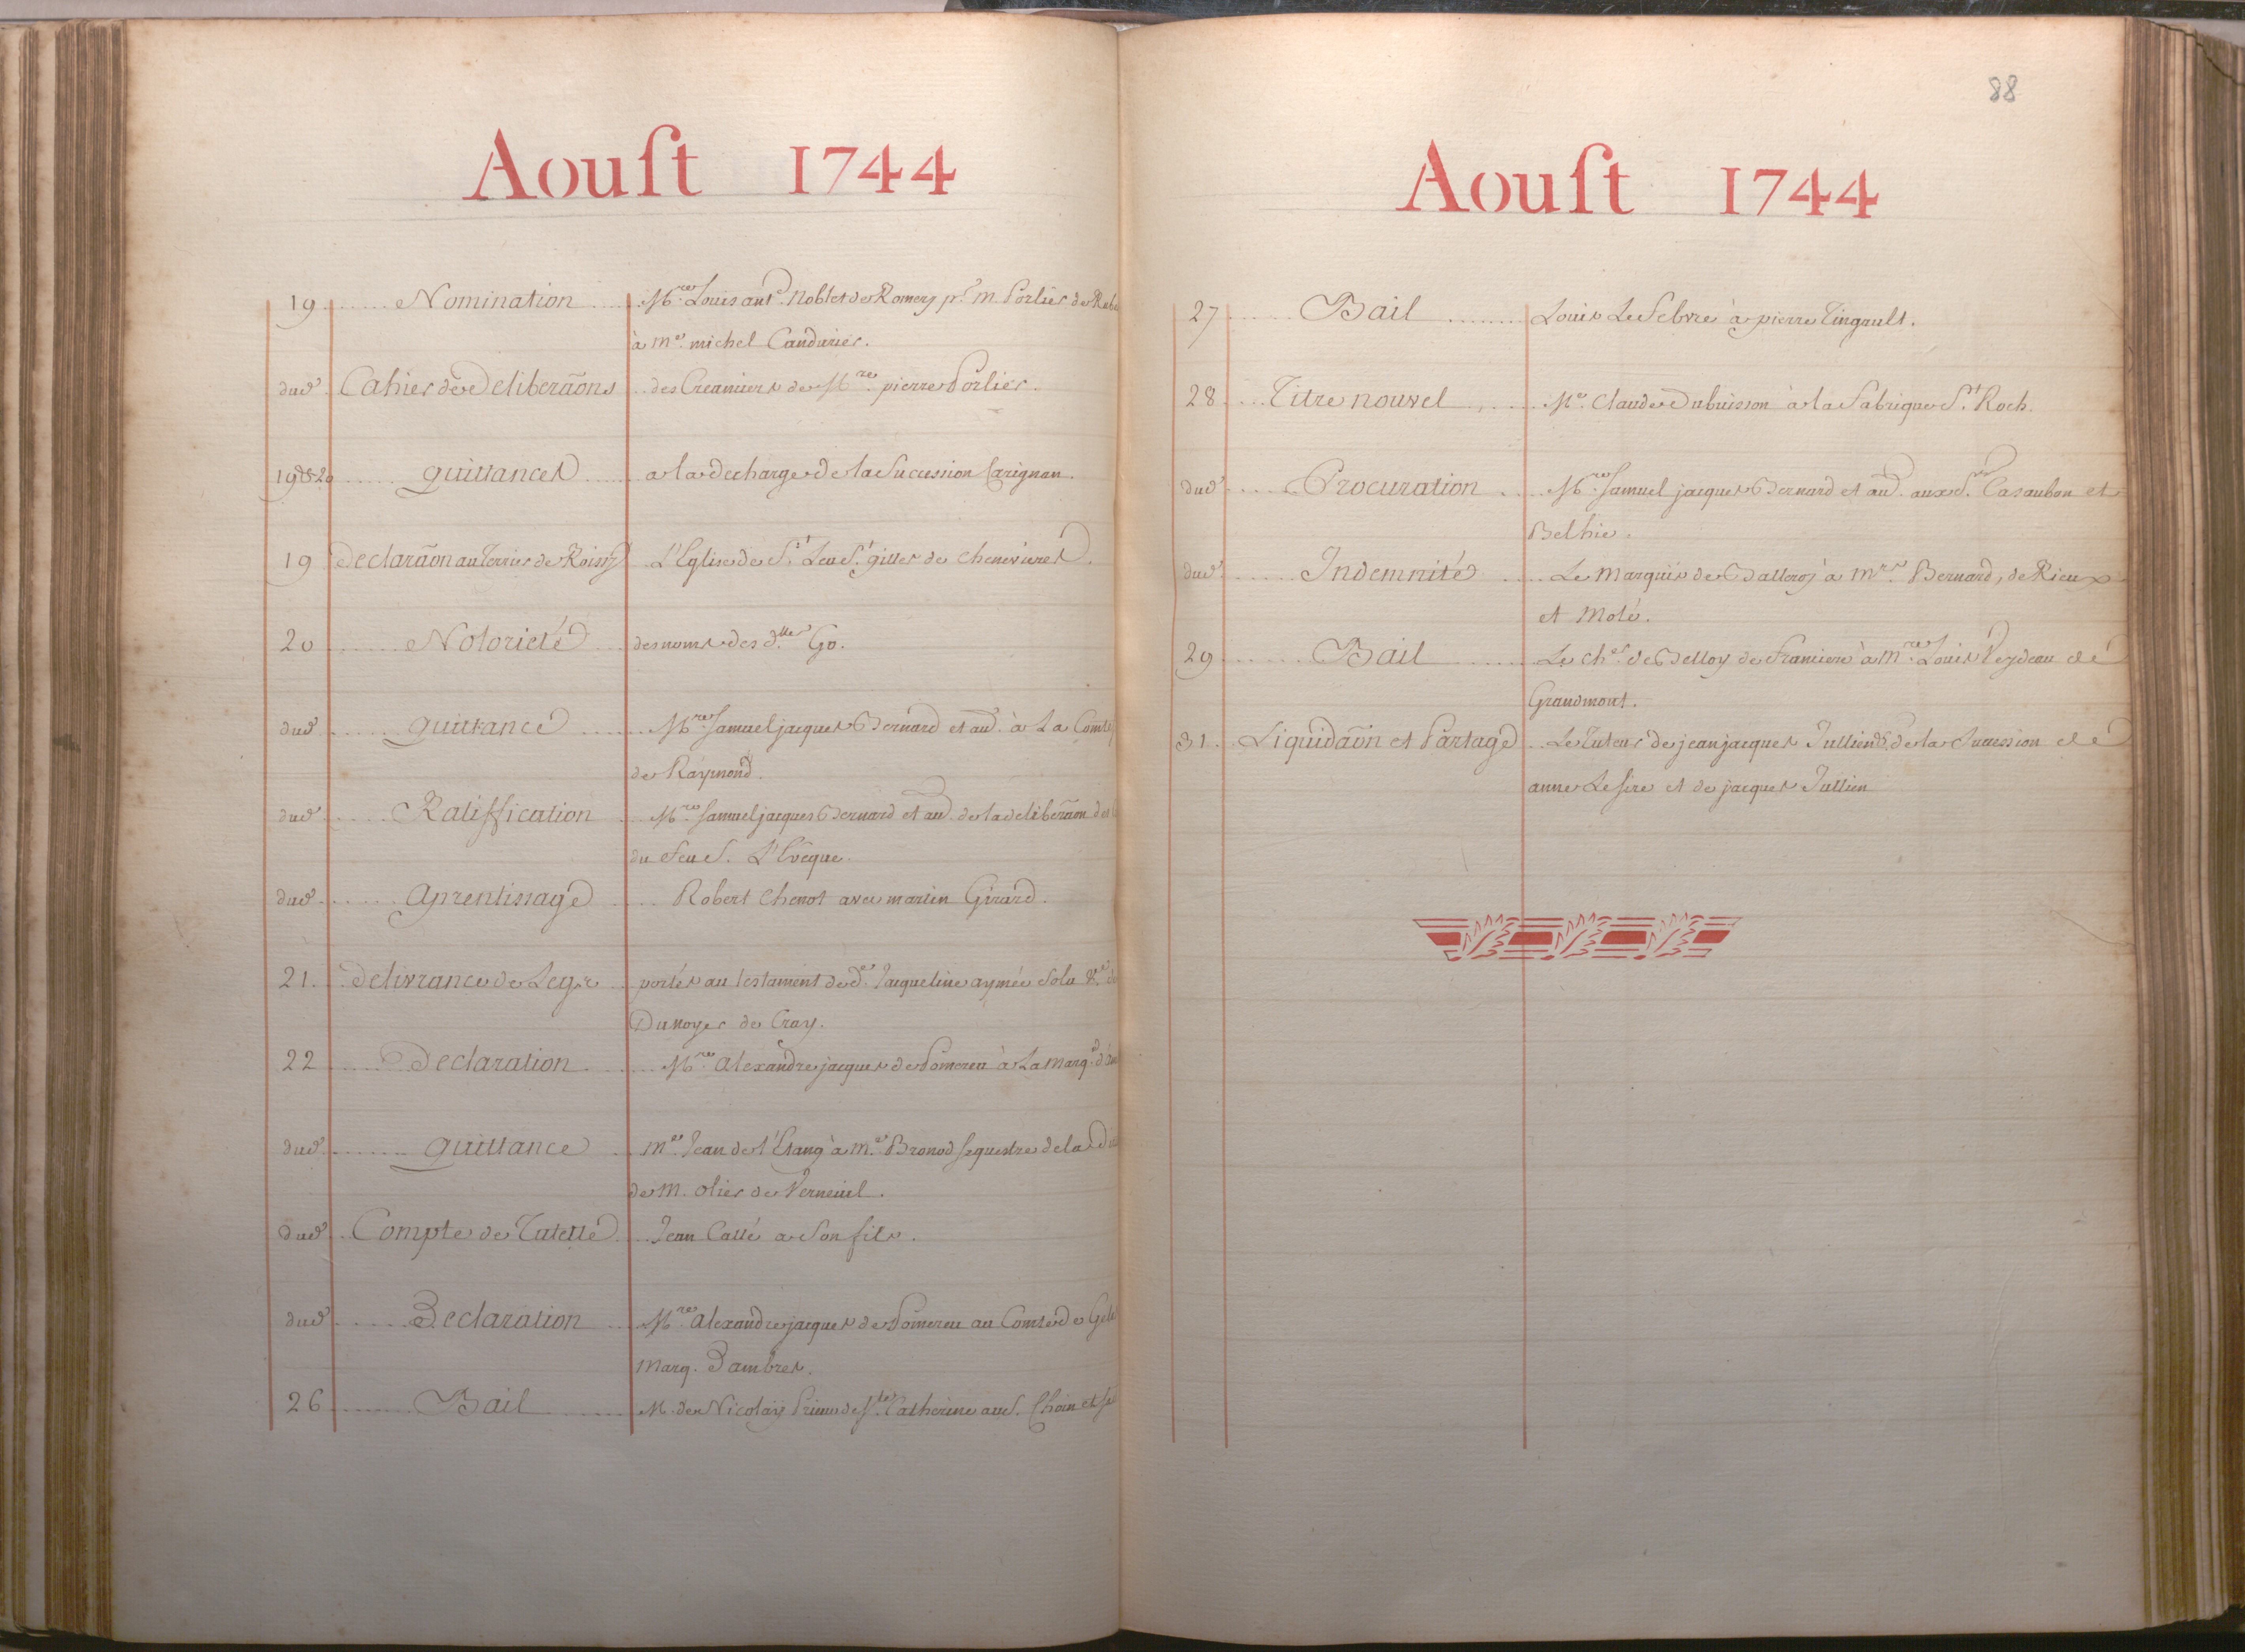 Aoust 1744
19 Nomination Mre. Louis ant. Noblet de Romery pr. M. Porlier de
à Me. michel Candavier.
dud. Cahier de Deliberãons des Creanciers de Mre. pierre Porlier.
19 & 20 quittances a la decharge de la Succession Carignan.
19 Declarãon au Terrier de Roissy L'Eglise de St. Leu St. gilles de chenevieres.
20 Notorieté des noms des dlles. Go.
dud. quittance Mre. Samuel jacques Bernard et au. à La Comtesse
de Raymond.
dud. Ratiffication Mre. Samuel jacques Bernard et au. de la deliberãon des
du feu S. L'Evêque.
dud. aprentissage Robert Chenot avec martin Girard.
21. delivrance de Legs portés au testament de de. Jacqueline aymée Solu Ve.
Dunoyer de Cray.
22 Declaration Mre. alexandre jacques de Pomereu à La Marq.
dud. quittance Me. Jean de l'Etang à Me. Bronod sequestre de la
de M. olier de Verneuil.
dud. Compte de Tutelle Jean Callé a Son fils.
dud. Declaration Mre. alexandre jacques de Pomereu au Comte de
Marq. Dambres.
26 Bail M. de Nicolaÿ Prieur de Ste. Catherine au S. Choin et
88
Aoust 1744
27 Bail Louis Le febvre à pierre Tingault.
28 Titre nouvel Me. Claude Dubuisson à la fabrique St. Roch.
dud. Procuration Mre. Samuel jacques Bernard et au. aux Srs. Casaubon et
Belhie.
dud. Indemnité Le Marquis de Balleroy à Mrs. Bernard, de Rieux
et Molé.
29 Bail Le cher. de Belloy de francieres à Mre. Louis Veydeau de
Grandmont.
31. Liquidãon et Partage Le Tuteur de jean jacques Jullien de la Succession de
anne Le fire et de jacques Jullien